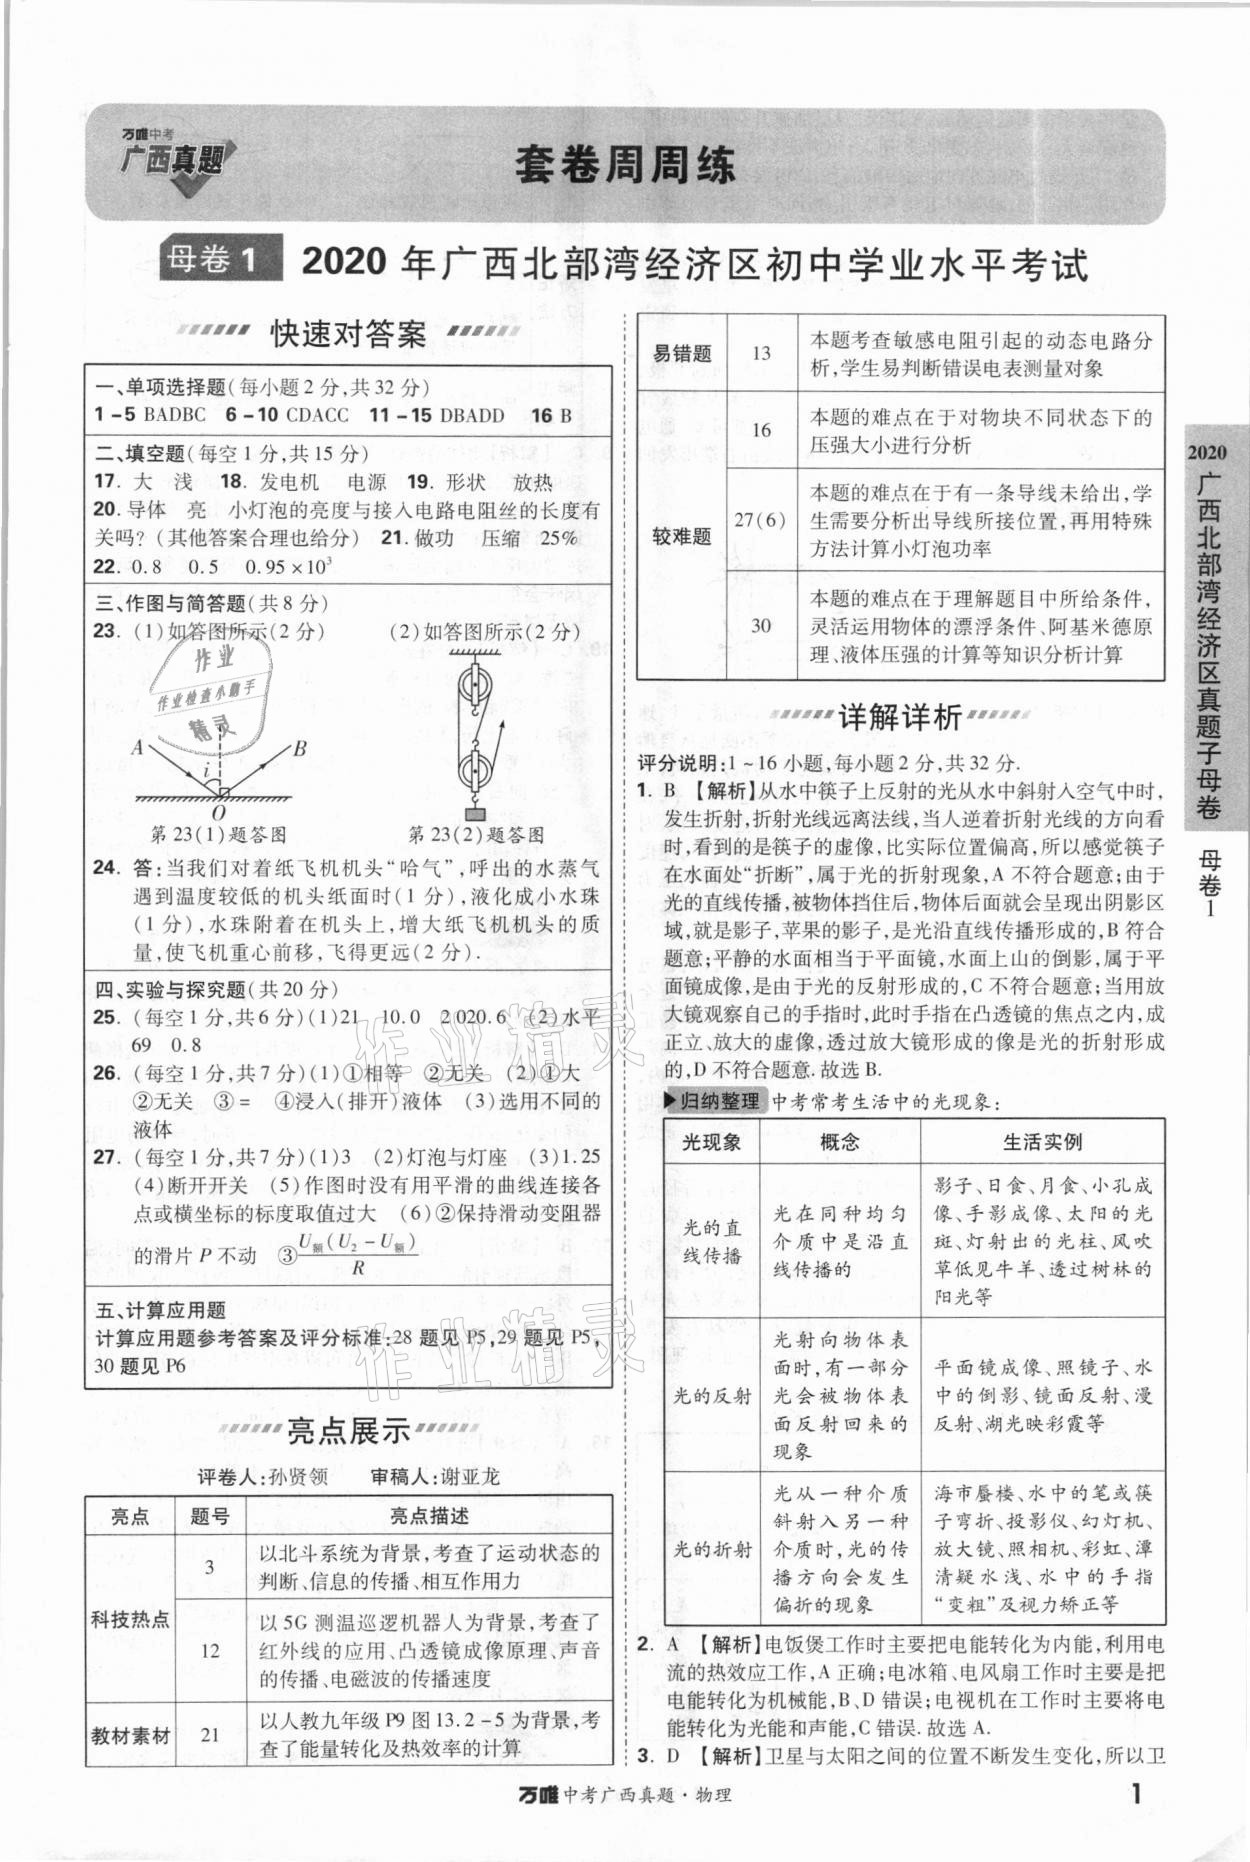 万唯中考
广西真题
套卷周周练
母卷1 2020年广西北部湾经济区初中学业水平考试
快速对答案
一、单项选择题(每小题2分,共32分)
1-5 BADBC 6-10 CDACC 11-15 DBADD 16 B
二、填空题(每空1分,共15分)
17. 大 浅 18. 发电机 电源 19. 形状 放热
20. 导体 亮 小灯泡的亮度与接入电路电阻丝的长度有
关吗?(其他答案合理也给分) 21. 做功 压缩 25%
22. 0.8 0.5 0.95×10³
三、作图与简答题(共8分)
23. (1)如答图所示(2分) (2)如答图所示(2分)
A B
i
O
第23(1)题答图 第23(2)题答图
24. 答:当我们对着纸飞机机头“哈气”,呼出的水蒸气
遇到温度较低的机头纸面时(1分),液化成小水珠
(1分),水珠附着在机头上,增大纸飞机机头的质
量,使飞机重心前移,飞得更远(2分).
四、实验与探究题(共20分)
25. (每空1分,共6分)(1)21 10.0 2 020.6 (2)水平
69 0.8
26. (每空1分,共7分)(1)①相等 ②无关 (2)①大
②无关 ③= ④浸入(排开)液体 (3)选用不同的
液体
27. (每空1分,共7分)(1)3 (2)灯泡与灯座 (3)1.25
(4)断开开关 (5)作图时没有用平滑的曲线连接各
点或横坐标的标度取值过大 (6)②保持滑动变阻器
的滑片P不动 ③U额(U2-U额)/R
五、计算应用题
计算应用题参考答案及评分标准:28题见P5,29题见P5,
30题见P6
亮点展示
评卷人:孙贤领 审稿人:谢亚龙
亮点 题号 亮点描述
科技热点
3
以北斗系统为背景,考查了运动状态的
判断、信息的传播、相互作用力
12
以5G测温巡逻机器人为背景,考查了
红外线的应用、凸透镜成像原理、声音
的传播、电磁波的传播速度
教材素材 21
以人教九年级P9图13.2-5为背景,考
查了能量转化及热效率的计算
易错题 13
本题考查敏感电阻引起的动态电路分
析,学生易判断错误电表测量对象
较难题
16
本题的难点在于对物块不同状态下的
压强大小进行分析
27(6)
本题的难点在于有一条导线未给出,学
生需要分析出导线所接位置,再用特殊
方法计算小灯泡功率
30
本题的难点在于理解题目中所给条件,
灵活运用物体的漂浮条件、阿基米德原
理、液体压强的计算等知识分析计算
详解详析
评分说明:1~16小题,每小题2分,共32分.
1. B 【解析】从水中筷子上反射的光从水中斜射入空气中时,
发生折射,折射光线远离法线,当人逆着折射光线的方向看
时,看到的是筷子的虚像,比实际位置偏高,所以感觉筷子
在水面处“折断”,属于光的折射现象,A不符合题意;由于
光的直线传播,被物体挡住后,物体后面就会呈现出阴影区
域,就是影子,苹果的影子,是光沿直线传播形成的,B符合
题意;平静的水面相当于平面镜,水面上山的倒影,属于平
面镜成像,是由于光的反射形成的,C不符合题意;当用放
大镜观察自己的手指时,此时手指在凸透镜的焦点之内,成
正立、放大的虚像,透过放大镜形成的像是光的折射形成
的,D不符合题意.故选B.
归纳整理 中考常考生活中的光现象:
光现象 概念 生活实例
光的直
线传播
光在同种均匀
介质中是沿直
线传播的
影子、日食、月食、小孔成
像、手影成像、太阳的光
斑、灯射出的光柱、风吹
草低见牛羊、透过树林的
阳光等
光的反射
光射向物体表
面时,有一部分
光会被物体表
面反射回来的
现象
平面镜成像、照镜子、水
中的倒影、镜面反射、漫
反射、湖光映彩霞等
光的折射
光从一种介质
斜射入另一种
介质时,光的传
播方向会发生
偏折的现象
海市蜃楼、水中的笔或筷
子弯折、投影仪、幻灯机、
放大镜、照相机、彩虹、潭
清疑水浅、水中的手指
“变粗”及视力矫正等
2. A 【解析】电饭煲工作时主要把电能转化为内能,利用电
流的热效应工作,A正确;电冰箱、电风扇工作时主要是把
电能转化为机械能,B、D错误;电视机在工作时主要将电
能转化为光能和声能,C错误.故选A.
3. D 【解析】卫星与太阳之间的位置不断发生变化,所以卫
2020广西北部湾经济区真题子母卷 母卷1
作业
作业检查小助手
精灵
作业精灵
作业精灵
万唯中考广西真题·物理
1